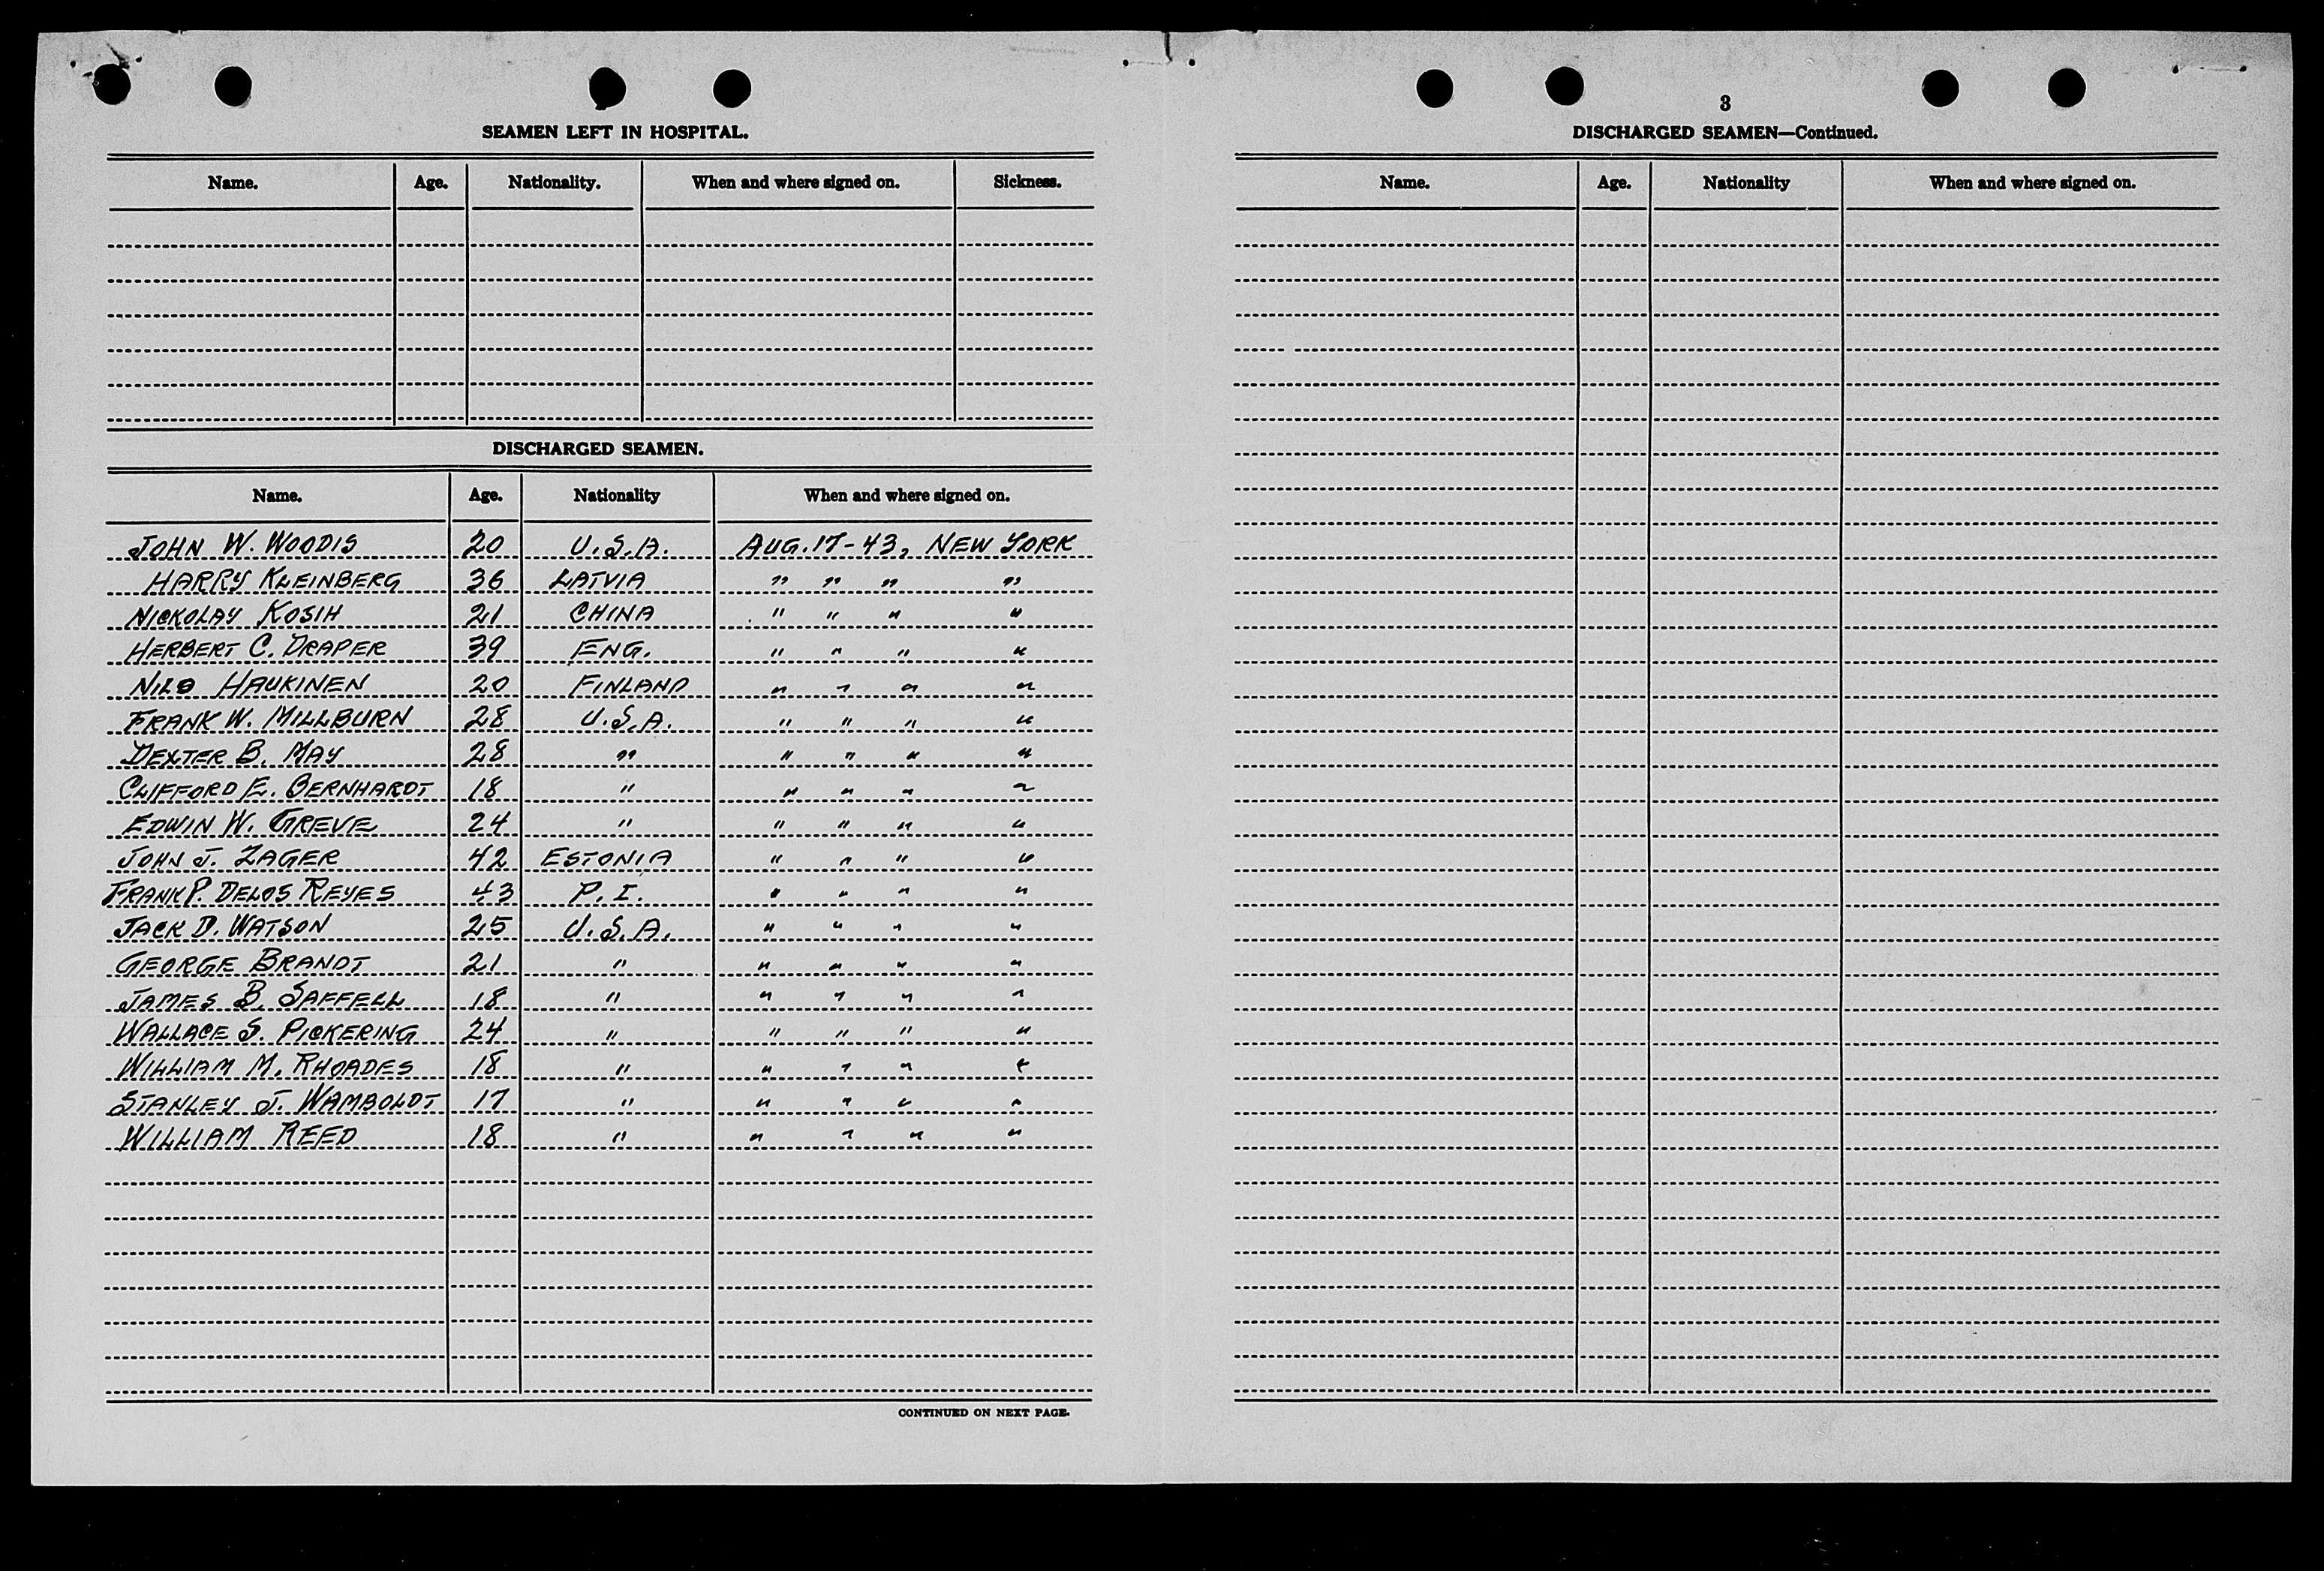 SEAMEN LEFT IN HOSPITAL.
Name. Age. Nationality. When and where signed on. Sickness.
DISCHARGED SEAMEN.
Name. Age. Nationality When and where signed on.
JOHN W. WOODIS 20 U.S.A. AUG. 17-43, NEW YORK
HARRY KLEINBERG 36 LATVIA " " " "
NICKOLAY KOSIH 21 CHINA " " " "
HERBERT C. DRAPER 39 ENG. " " " "
NILO HAUKINEN 20 FINLAND " " " "
FRANK W. MILLBURN 28 U.S.A. " " " "
DEXTER B. MAY 28 " " " " "
CLIFFORD E. BERNHARDT 18 " " " " "
EDWIN W. GREVE 24 " " " " "
JOHN J. ZAGER 42 ESTONIA " " " "
FRANK P. DELOS REYES 43 P.I. " " " "
JACK D. WATSON 25 U.S.A. " " " "
GEORGE BRANDT 21 " " " " "
JAMES B. SAFFELL 18 " " " " "
WALLACE S. PICKERING 24 " " " " "
WILLIAM M. RHOADES 18 " " " " "
STANLEY J. WAMBOLDT 17 " " " " "
WILLIAM REED 18 " " " " "
CONTINUED ON NEXT PAGE.
3
DISCHARGED SEAMEN—Continued.
Name. Age. Nationality When and where signed on.